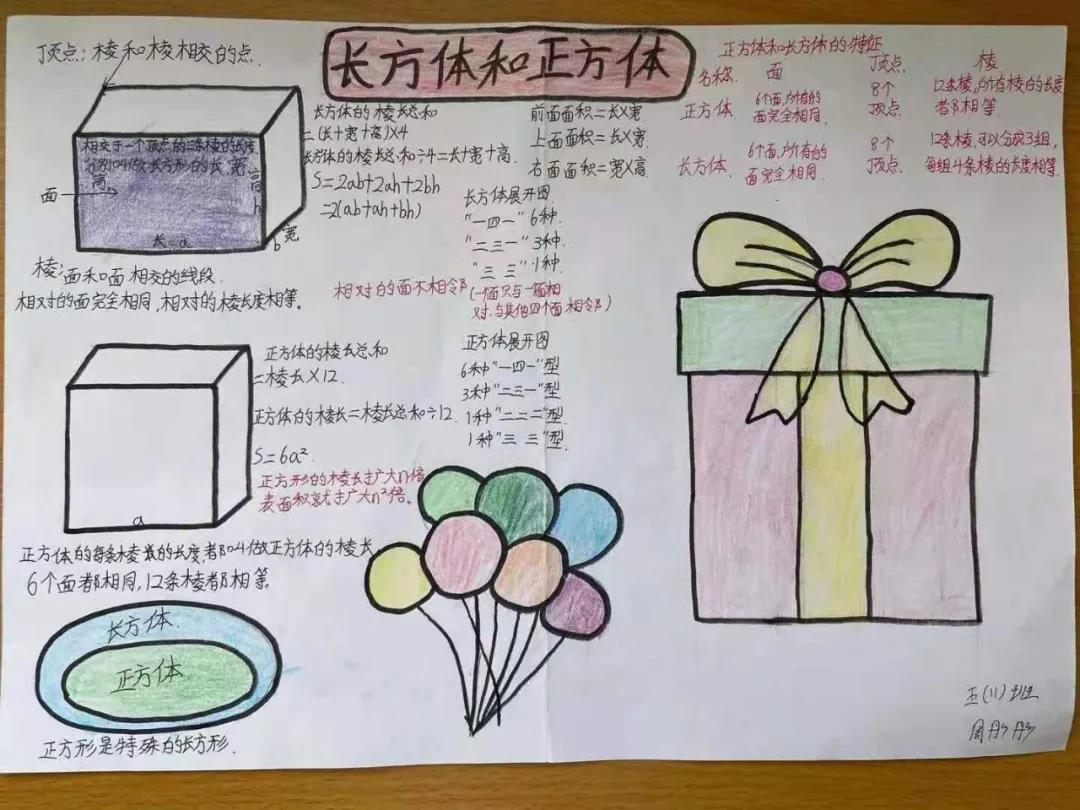 长方体和正方体
顶点:棱和棱相交的点.
相交于一个顶点的三条棱的长度
分别叫做长方形的长、宽、
高
面
高
h
长=a
b
宽
棱:面和面相交的线段.
相对的面完全相同,相对的棱长度相等。
长方体的棱长总和
=(长+宽+高)×4
长方体的棱长总和÷4=长+宽+高.
S=2ab+2ah+2bh
=2(ab+ah+bh)
前面面积=长×宽
上面面积=长×宽.
右面面积=宽×高.
长方体展开图.
“一四一”6种.
“二三一”3种.
“三 三”1种.
相对的面不相邻
(一个面只与一个面相
对,与其他四个面相邻)
正方体和长方体的特征
名称. 面 顶点. 棱
正方体. 6个面,所有的面完全相同. 8个顶点 12条棱,所有棱的长度都相等.
长方体. 6个面,所有的面完全相同. 8个顶点. 12条棱,可以分成3组,每组4条棱的长度相等.
正方体的棱长总和
=棱长×12.
正方体的棱长=棱长总和÷12.
S=6a².
正方形的棱长扩大n倍
表面积就扩大n²倍。
a
正方体展开图
6种“一四一”型
3种“二三一”型
1种“二二二”型
1种“三 三”型.
正方体的每条棱的长度,都叫做正方体的棱长
6个面都相同,12条棱都相等。
长方体.
正方体.
正方形是特殊的长方形.
五(11)班
周彤彤